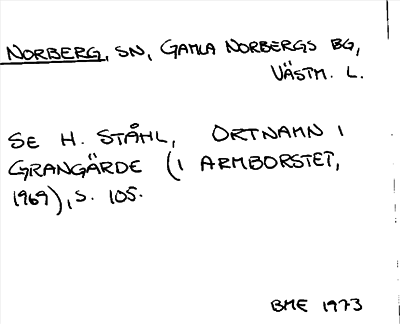 NORBERG, SN, GAMLA NORBERGS BG,
VÄSTM. L.
SE H. STÅHL, ORTNAMN I
GRANGÄRDE (I ARMBORSTET,
1969), S. 105.
BME 1973